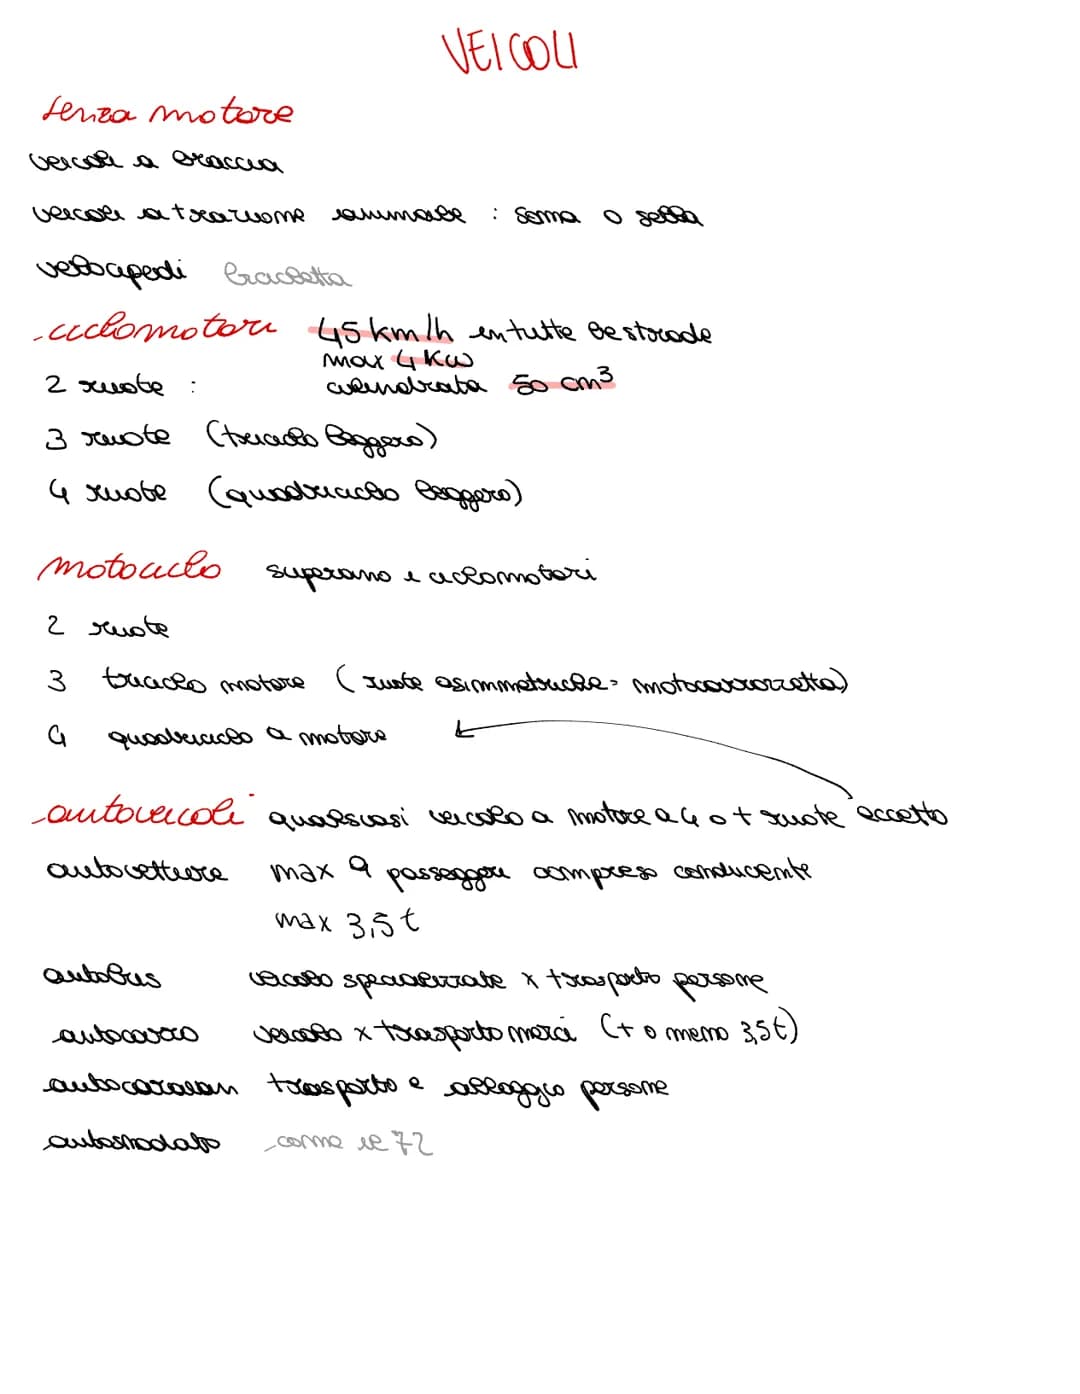 VEICOLI
senza motore
veicoli a braccia
veicoli a trazione animale : soma o sella
velocipedi bicicletta
ciclomotori 45 km/h in tutte le strade
max 4 KW
2 ruote : cilindrata 50 cm³
3 ruote (triciclo leggero)
4 ruote (quadriciclo leggero)
motociclo superano i ciclomotori
2 ruote
3 triciclo motore ( ruote asimmetriche = motocarrozzetta)
4 quadriciclo a motore
autoveicoli qualsiasi veicolo a motore a 4 o + ruote eccetto
autovetture max 9 passeggeri compreso conducente
max 3,5 t
autobus veicolo specializzate x trasporto persone
autocarro veicolo x trasporto merci (+ o meno 3,5t)
autocaravan trasporto e alloggio persone
autosnodato come il 72